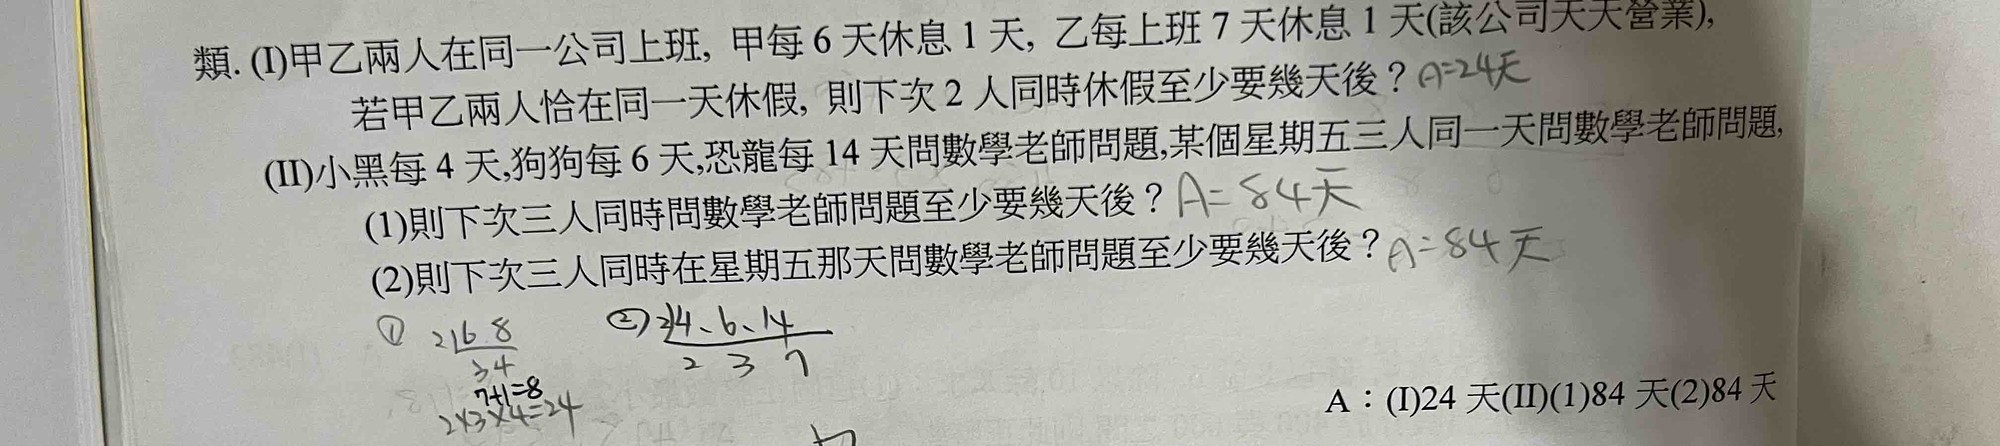 類. (I)甲乙兩人在同一公司上班, 甲每 6 天休息 1 天, 乙每上班 7 天休息 1 天(該公司天天營業),
若甲乙兩人恰在同一天休假, 則下次 2 人同時休假至少要幾天後？ A=24天
(II)小黑每 4 天,狗狗每 6 天,恐龍每 14 天問數學老師問題,某個星期五三人同一天問數學老師問題,
(1)則下次三人同時問數學老師問題至少要幾天後？ A=84天
(2)則下次三人同時在星期五那天問數學老師問題至少要幾天後？ A=84天
① 2|6 8
3 4
7+1=8
2×3×4=24
② 2|4、6、14
2 3 7
A：(I)24 天(II)(1)84 天(2)84 天